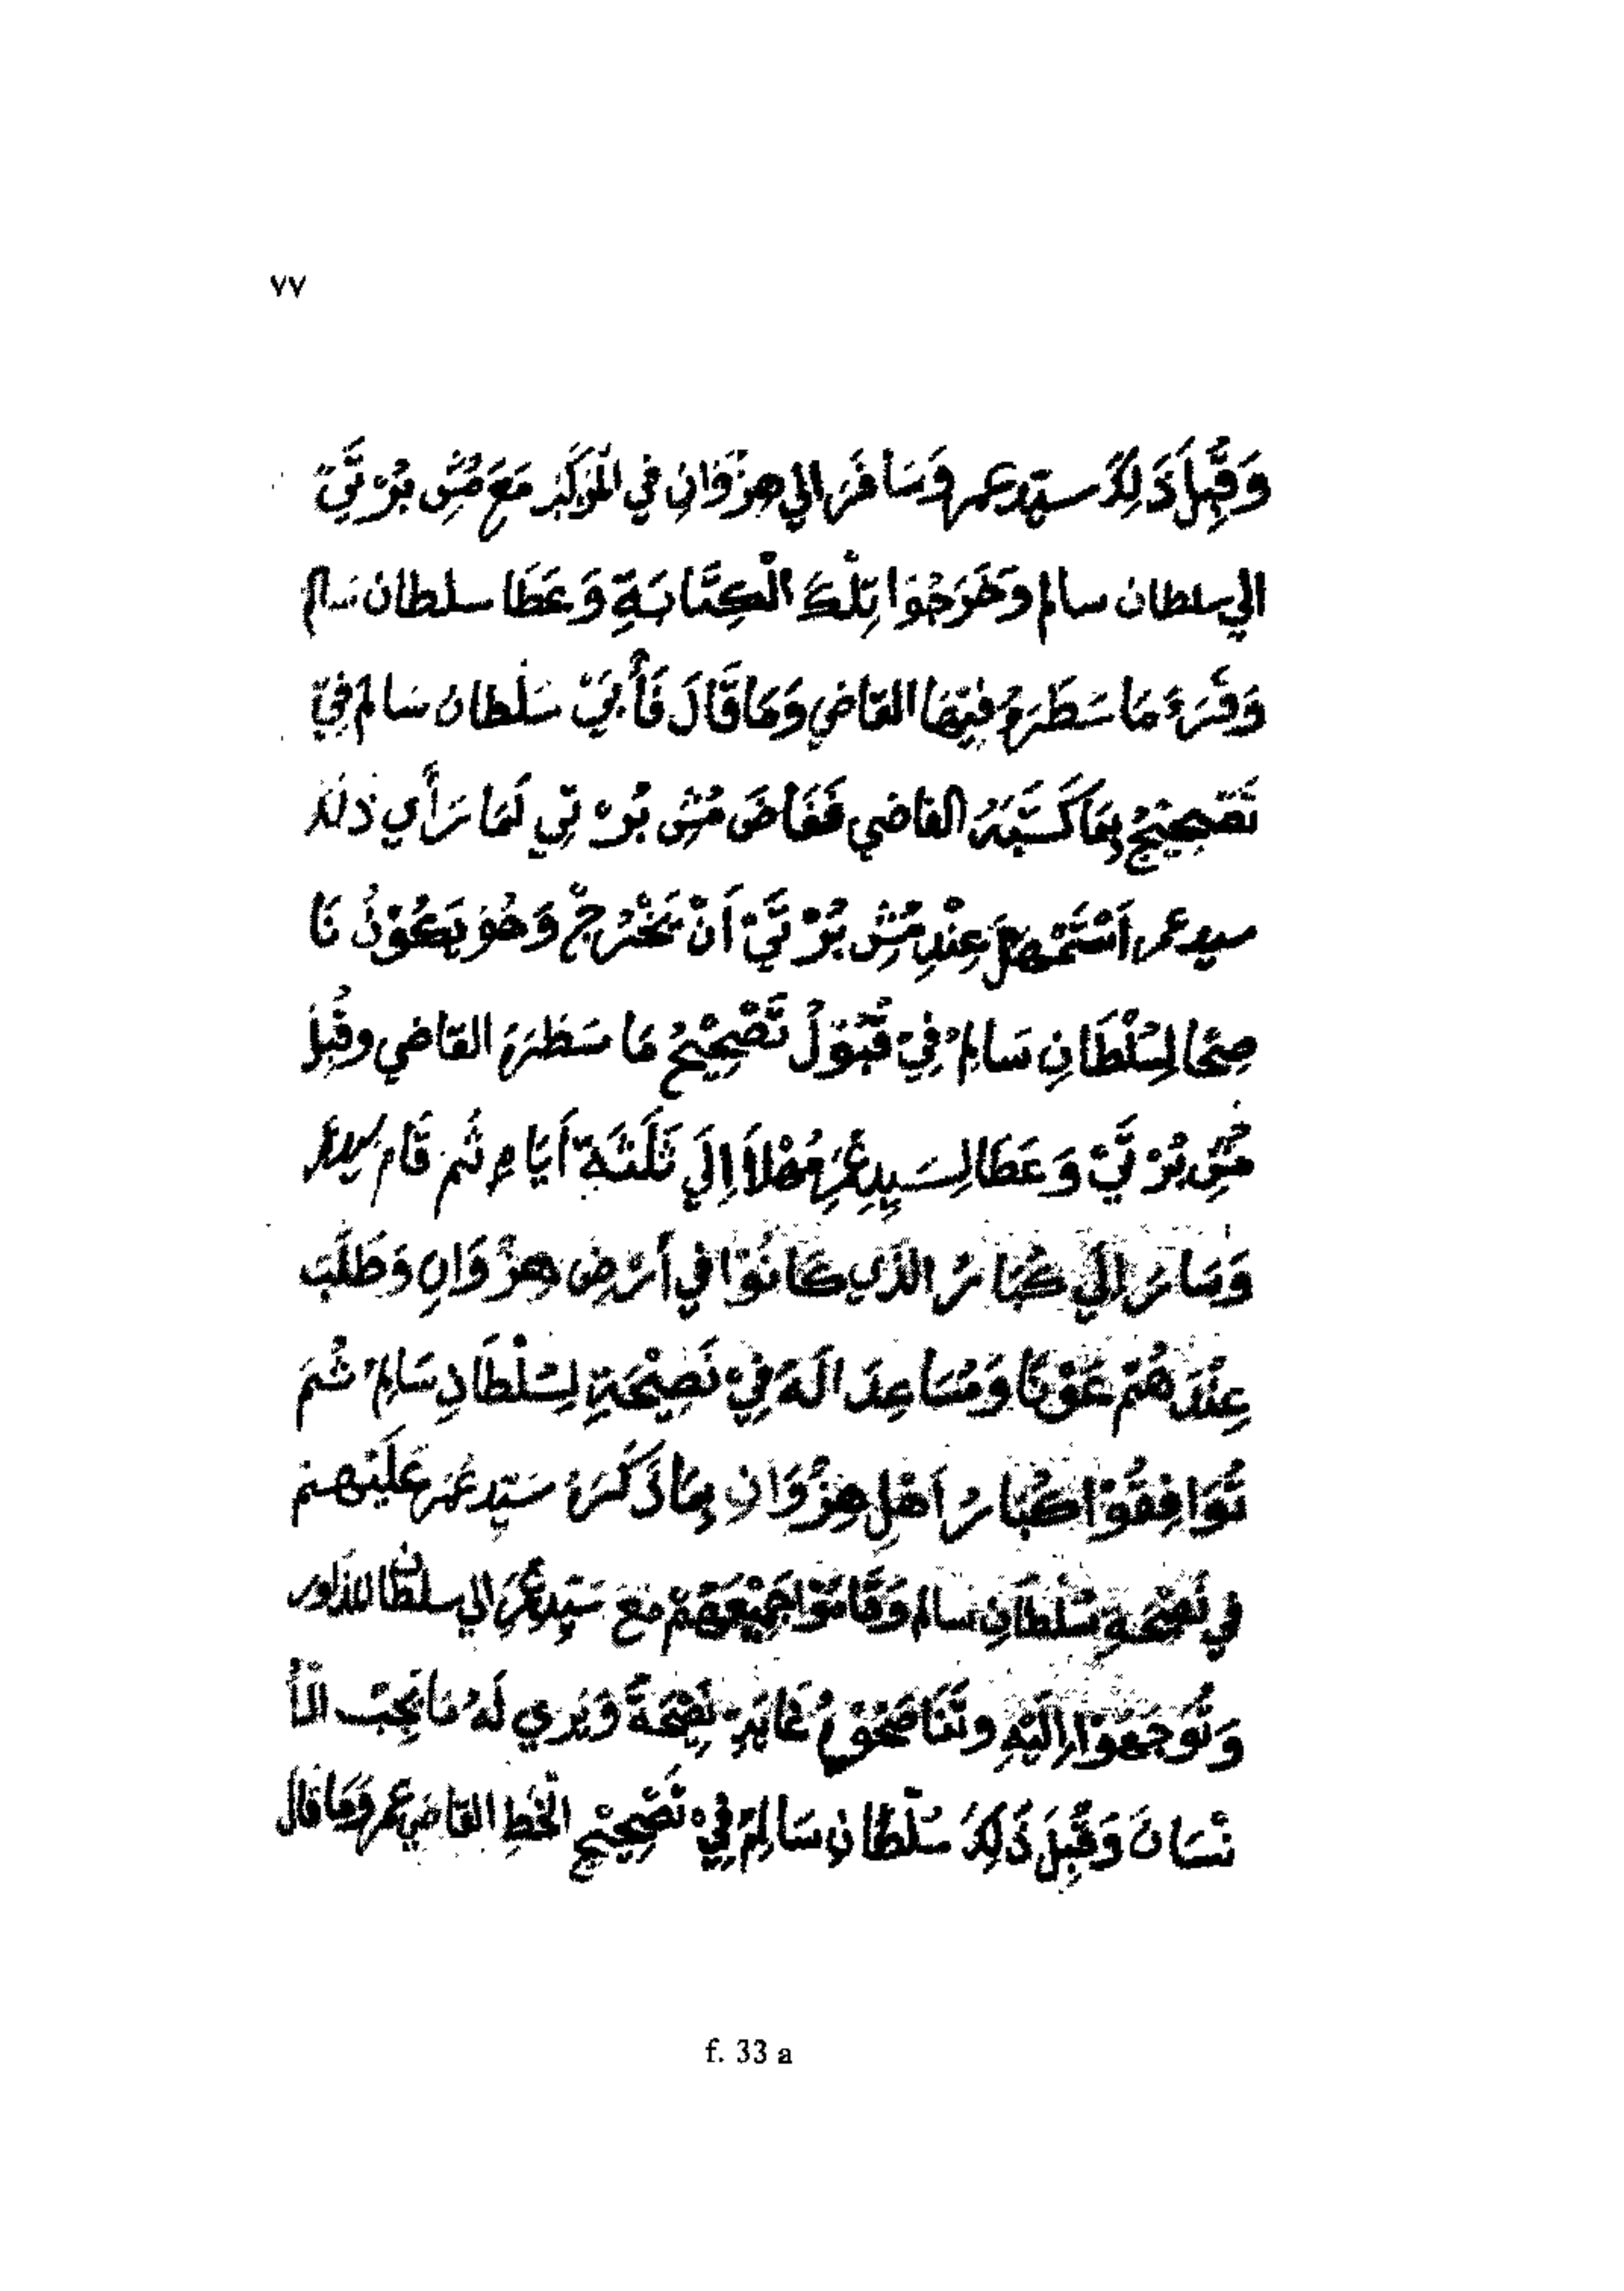 ٧٧
وَقَبِلَ ذَلِكَ سيّد عمر وَسَافَرَ الي هِنْزُوَانِ فِي الْمَرْكَبِ مَعَ مُسِ بُرْتِيْ
الي سلطان سالم وَخَرَجُوا تِلْكَ الْكِتَابَةِ وَعَطَا سلطان سَالم
وَقَرَءَ مَا سَطَرَهُ فِيْهَا القاضي وَمَا قَالَ فَأَبَيْ سَلْطان سَالم فِيْ
تَصْحِيْحِ بِمَا كَتَبَهُ القاضي فَفَاضَ مُسِ بُرْتِي لَمَا رَأي ذلك
سيد عمر اَسْتَمْهِلَ عِنْدِ مُسِ بُرْتِيْ اَنْ يَخْرُجْ وَهُوَ يَكُوْنُ نَا
صِحًا لِسُلْطَانِ سَالِمْ فِيْ قُبُوْلِ تَصْحِيْحُ مَا سَطَرَهُ القاضي وقَبِلَ
مُسِ بُرْتِيْ وَعَطَا لِسَيِدِ عُمَرِ مُهْلاً اِلَي ثَلَثَةِ اَيَامِ ثُم قَام سيد عمر
وَسَارَ اِلَيْ كُبَارُ الذي كَانُوْا فِي أَرْضِ هِنْزُوَانِ وَطَلَبَ
عِنْدَهُمْ عَوْنًا وَمُسَاعِدَا لَهُ فِيْ نَصِيْحَةِ لِسُلْطَانِ سَالِمْ ثُمَ
تُوَافِقُوْا كُبَارُ اَهْلِ هِنْزُوَانِ بِمَا ذَكَرَهُ سَيّدِ عُمَرَ عَلَيْهِمْ
فِي نَصِيْحَةِ سُلْطَانِ سالم وَقَامُوْا جَمِيْعَهُمْ مَعَ سَيّدِ عُمَرَ الي سلطان المذكور
وَتُوَجَهُوْا اِلَيْهِ وَتَنَاصَحُوْهُ غَايَةِ نَصِيْحَةً وَيَرَي لَهُ مَا يَجِبُ الْأ
نْسَانَ وَقَبِلَ ذَلِكَ سُلْطَانِ سَالِمْ فِيْ تَصْحِيْحِ الْخَطِ القاضي عمر وَمَا قال
f. 33 a